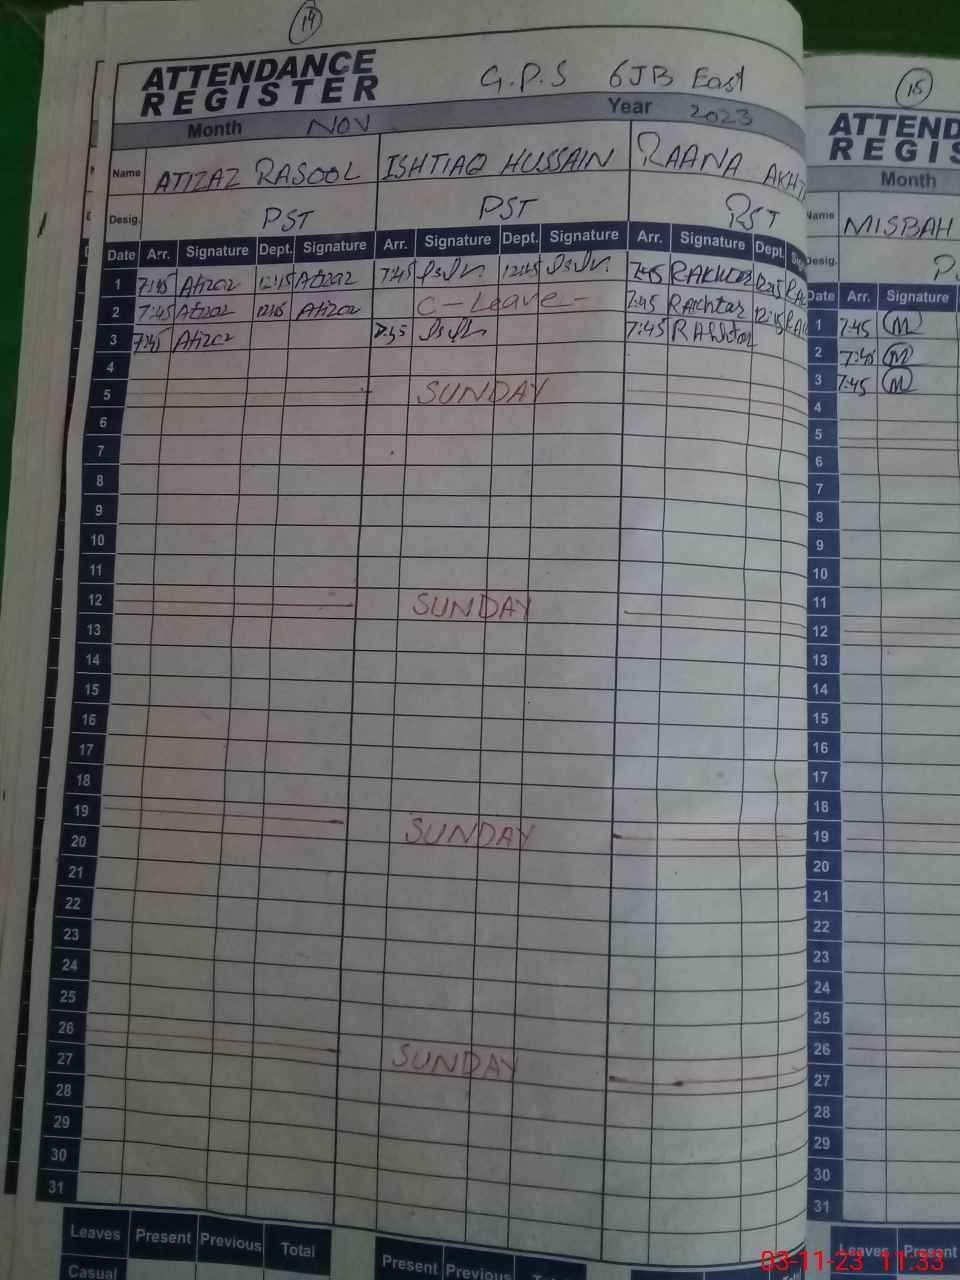 14
ATTENDANCE
REGISTER
G.P.S 6JB East
Month NOV Year 2023
Name ATIZAZ RASOOL ISHTIAQ HUSSAIN RAANA AKHT
Desig. PST PST PST
Date Arr. Signature Dept. Signature Arr. Signature Dept. Signature Arr. Signature Dept.
1 7:45 Atizaz 12:15 Atizaz 7:45 12:45 7:45 RAKhtar 12:15
2 7:45 Atizaz 12:15 Atizaz C-Leave- 7:45 RAkhtar 12:15
3 7:45 Atizaz 7:45 7:45 RAkhtar
4
5 SUNDAY
6
7
8
9
10
11
12 SUNDAY
13
14
15
16
17
18
19 SUNDAY
20
21
22
23
24
25
26 SUNDAY
27
28
29
30
31
Leaves Present Previous Total Present Previous
Casual
15
ATTEND
REGIS
Month
Name MISBAH
Desig.
Date Arr. Signature
1 7:45 M
2 7:45 M
3 7:45 M
4
5
6
7
8
9
10
11
12
13
14
15
16
17
18
19
20
21
22
23
24
25
26
27
28
29
30
31
Leaves Present
03-11-23 11:33